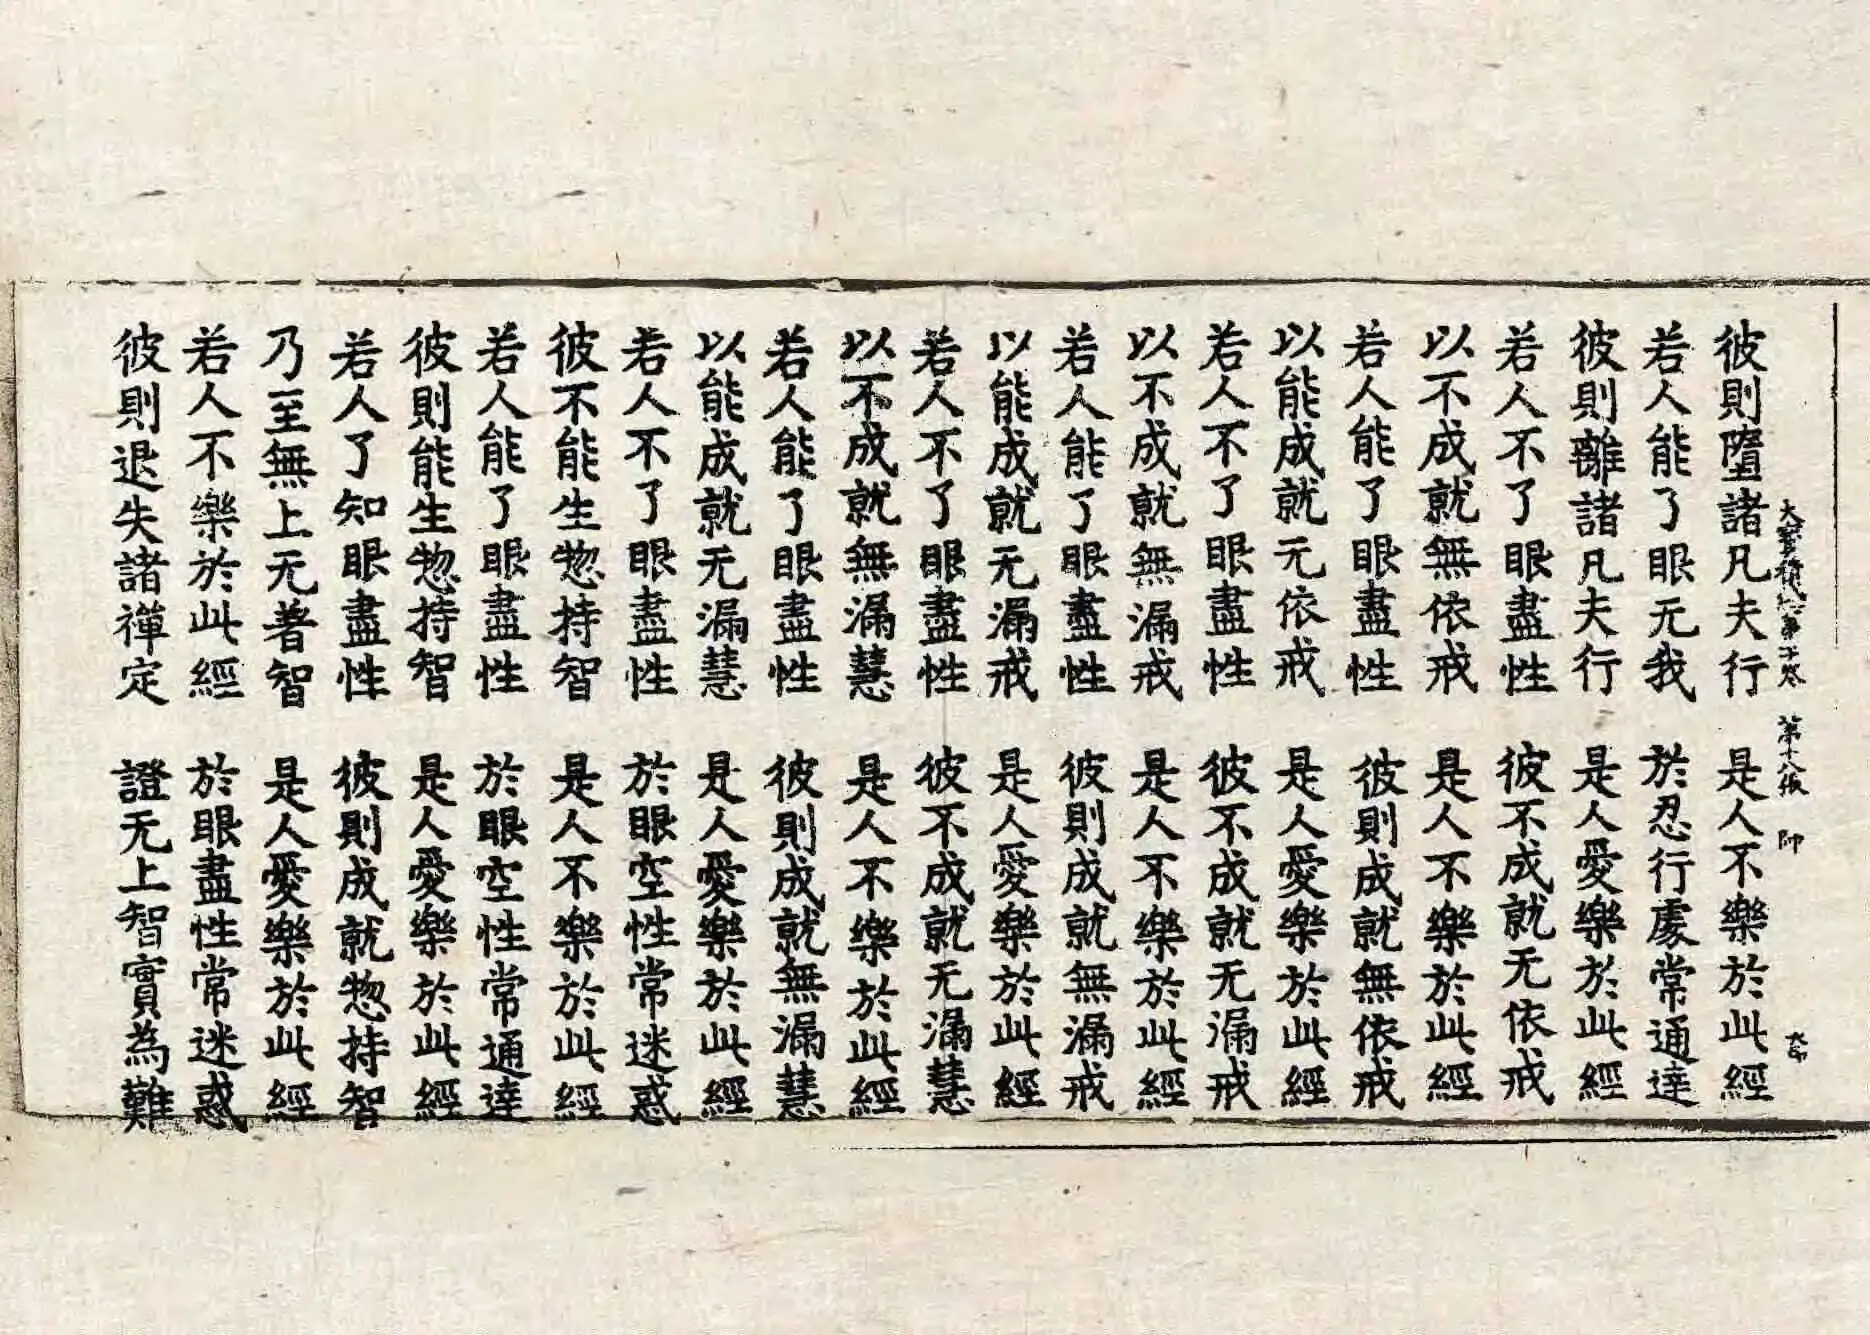 大寳積經第十卷　第十八張　師　大印
彼則墮諸凡夫行　是人不樂於此經
若人能了眼无我　於忍行處常通達
彼則離諸凡夫行　是人愛樂於此經
若人不了眼盡性　彼不成就无依戒
以不成就無依戒　是人不樂於此經
若人能了眼盡性　彼則成就無依戒
以能成就无依戒　是人愛樂於此經
若人不了眼盡性　彼不成就无漏戒
以不成就無漏戒　是人不樂於此經
若人能了眼盡性　彼則成就無漏戒
以能成就无漏戒　是人愛樂於此經
若人不了眼盡性　彼不成就无漏慧
以不成就無漏慧　是人不樂於此經
若人能了眼盡性　彼則成就無漏慧
以能成就无漏慧　是人愛樂於此經
若人不了眼盡性　於眼空性常迷惑
彼不能生惣持智　是人不樂於此經
若人能了眼盡性　於眼空性常通達
彼則能生惣持智　是人愛樂於此經
若人了知眼盡性　彼則成就惣持智
乃至無上无着智　是人愛樂於此經
若人不樂於此經　於眼盡性常迷惑
彼則退失諸禪定　證无上智實為難